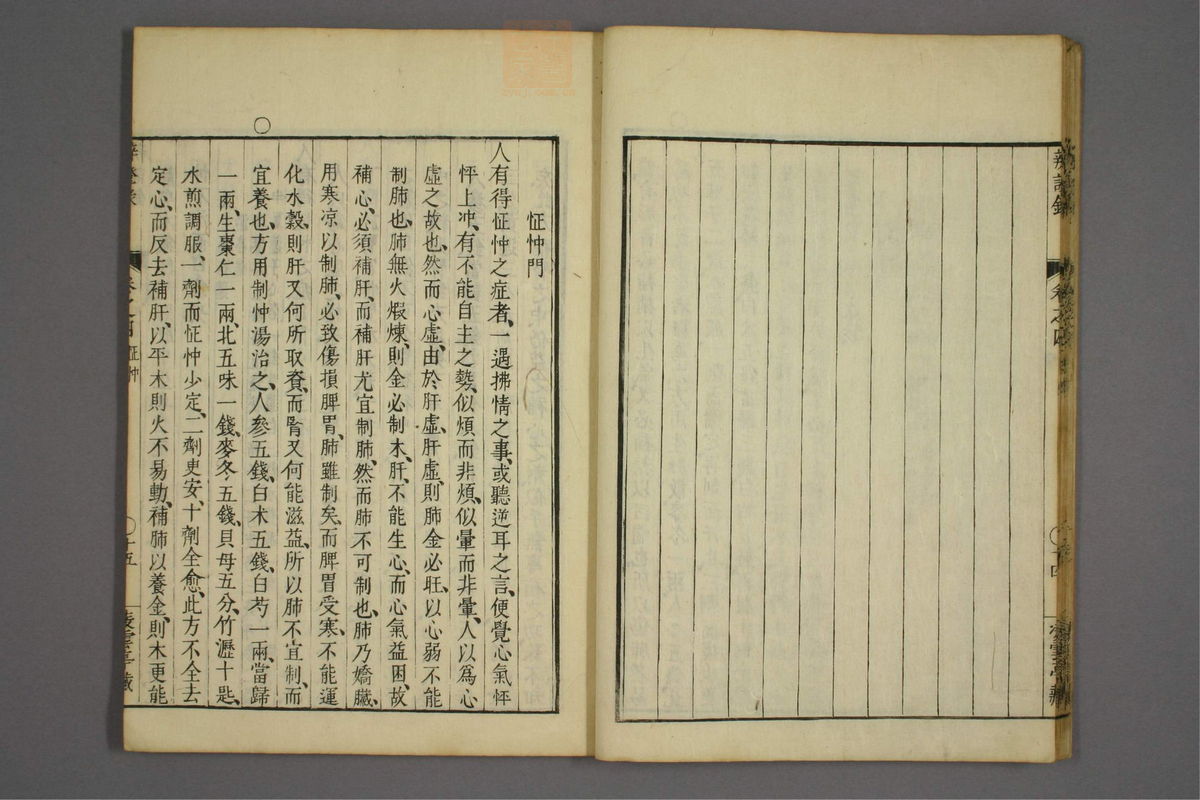 辨證錄
卷之四
十四
怔忡門
人有得怔忡之症者、一遇拂情之事、或聽逆耳之言、便覺心氣怦
怦上冲、有不能自主之勢、似煩而非煩、似暈而非暈、人以爲心
虛之故也、然而心虛、由於肝虛、肝虛、則肺金必旺、以心弱不能
制肺也、肺無火煆煉、則金必制木、肝不能生心、而心氣益困、故
補心、必須補肝、而補肝尤宜制肺、然而肺不可制也、肺乃嬌臟、
用寒凉以制肺、必致傷損脾胃、肺雖制矣、而脾胃受寒、不能運
化水穀、則肝又何所取資、而腎又何能滋益、所以肺不宜制、而
宜養也、方用制忡湯治之、人參五錢、白术五錢、白芍一兩、當歸
一兩、生棗仁一兩、北五味一錢、麥冬五錢、貝母五分、竹瀝十匙、
水煎調服、一劑而怔忡少定、二劑更安、十劑全愈、此方不全去
定心、而反去補肝、以平木則火不易動、補肺以養金、則木更能
怔忡
十五